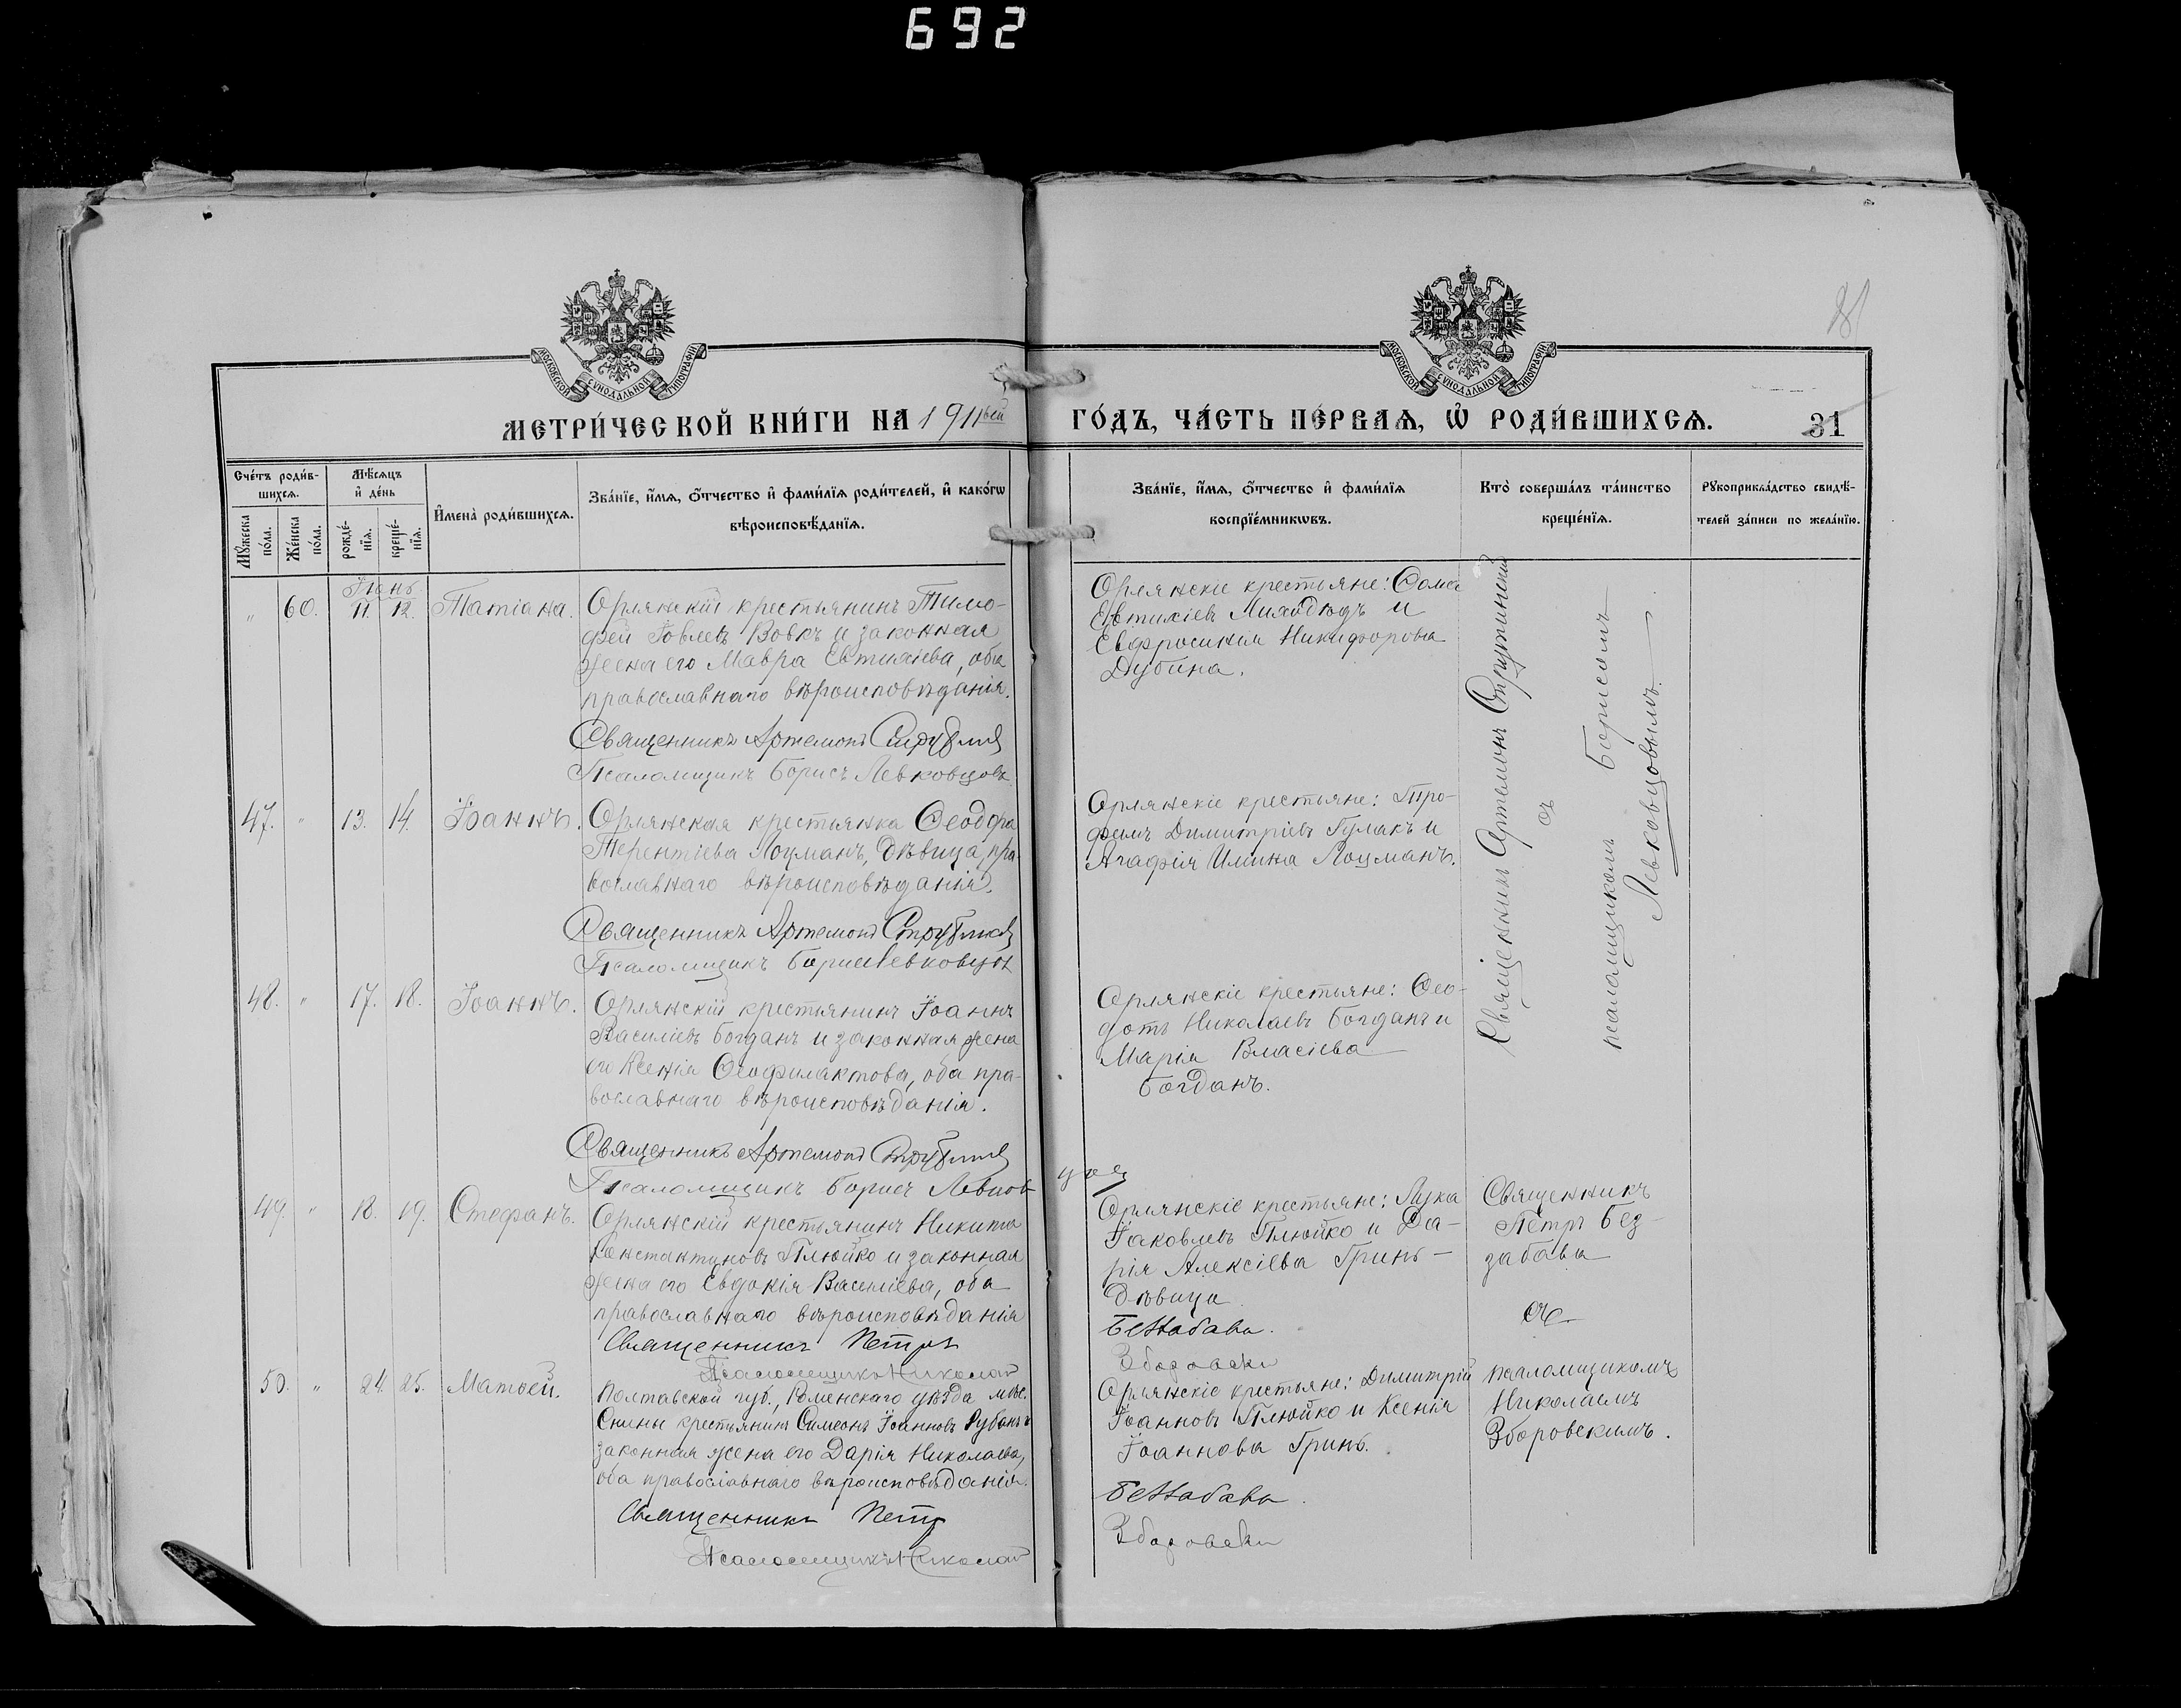 692
81
МОСКОВСКОЙ СѴНОДАЛЬНОЙ ТИПОГРАФІИ
МОСКОВСКОЙ СѴНОДАЛЬНОЙ ТИПОГРАФІИ
МЕТРИ́ЧЕСКОЙ КНИ́ГИ НА 1911вый ГО́ДЪ, ЧА́СТЬ ПЕ́РВАѦ, Ѽ РОДИ́ВШИХСѦ.
31
Сче́тъ роди́в-
шихсѧ.
Мꙋ́жеска
по́ла.
Же́нска
по́ла.
Мѣ́сѧцъ
и҆ де́нь
рожде́-
нїѧ.
креще́-
нїѧ.
И҆мена̀ роди́вшихсѧ.
Зва́нїе, и҆́мѧ, ѻ҆́тчество и҆ фами́лїѧ роди́телей, и҆ како́гѡ
вѣроисповѣ́данїѧ.
Зва́нїе, и҆́мѧ, ѻ҆́тчество и҆ фами́лїѧ
воспрїе́мникѡвъ.
Кто̀ соверша́лъ та́инство
креще́нїѧ.
Рꙋкоприкла́дство свидѣ́-
телей за́писи по жела́нїю.
Іюнь
" 60. 11. 12. Татіана.
Орлянскій крестьянинъ Тимо-
фей Іовлевъ Вовкъ и законная
жена его Мавра Евтихіева, оба
православнаго вѣроисповѣданія.
Священникъ Артемонъ
Псаломщикъ Борисъ Левковцовъ
Орлянскіе крестьяне: Ѳома
Евтихіевъ и
Евфросинія Никифорова
Дубина.
Священникъ Артемонъ Струтинскій
съ
псаломщикомъ Борисомъ
Левковцовымъ.
47. " 13. 14. Іоаннъ.
Орлянская крестьянка Ѳеодора
Терентіева Лоцманъ, дѣвица, пра-
вославнаго вѣроисповѣданія.
Священникъ Артемонъ
Псаломщикъ Борисъ Левковцов
Орлянскіе крестьяне: Тро-
фимъ Димитріевъ Гулакъ и
Агафія Ильина Лоцманъ.
48. " 17. 18. Іоаннъ.
Орлянскій крестьянинъ Іоаннъ
Василіевъ Богданъ и законная жена
его Ксенія Ѳеофилактова, оба пра-
вославнаго вѣроисповѣданія.
Священникъ Артемонъ
Псаломщикъ Борисъ Левков
Орлянскіе крестьяне: Ѳео-
дотъ Николаевъ Богданъ и
Марія Власіева
Богданъ.
49. " 18. 19. Стефанъ.
Орлянскій крестьянинъ Никита
Константиновъ Плюйко и законная
жена его Евдокія Василіева, оба
православнаго вѣроисповѣданія
Священникъ Петръ
Псаломщикъ Николай
Орлянскіе крестьяне: Лука
Іаковлевъ Плюйко и Да-
рія Алексіева Гринь -
дѣвица
Беззабава.
Зборовски
Священникъ
Петръ Без-
забава
съ
псаломщикомъ
Николаемъ
Зборовскимъ.
50. " 24. 25. Матѳей.
Полтавской губ., Роменскаго уѣзда мѣс.
Смѣлы крестьянинъ Симеонъ Іоанновъ Рубанъ и
законная жена его Дарія Николаева,
оба православнаго вѣроисповѣданія.
Священникъ Петръ
Псаломщикъ Николай
Орлянскіе крестьяне: Димитрій
Іоанновъ Плюйко и Ксенія
Іоаннова Гринь.
Беззабава.
Зборовски